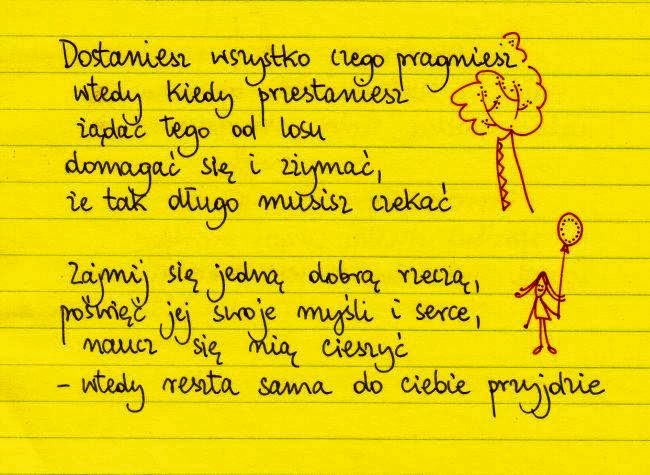 Dostaniesz wszystko czego pragniesz
wtedy kiedy przestaniesz
żądać tego od losu
domagać się i zżymać,
że tak długo musisz czekać
Zajmij się jedną dobrą rzeczą,
poświęć jej swoje myśli i serce,
naucz się nią cieszyć
– wtedy reszta sama do ciebie przyjdzie